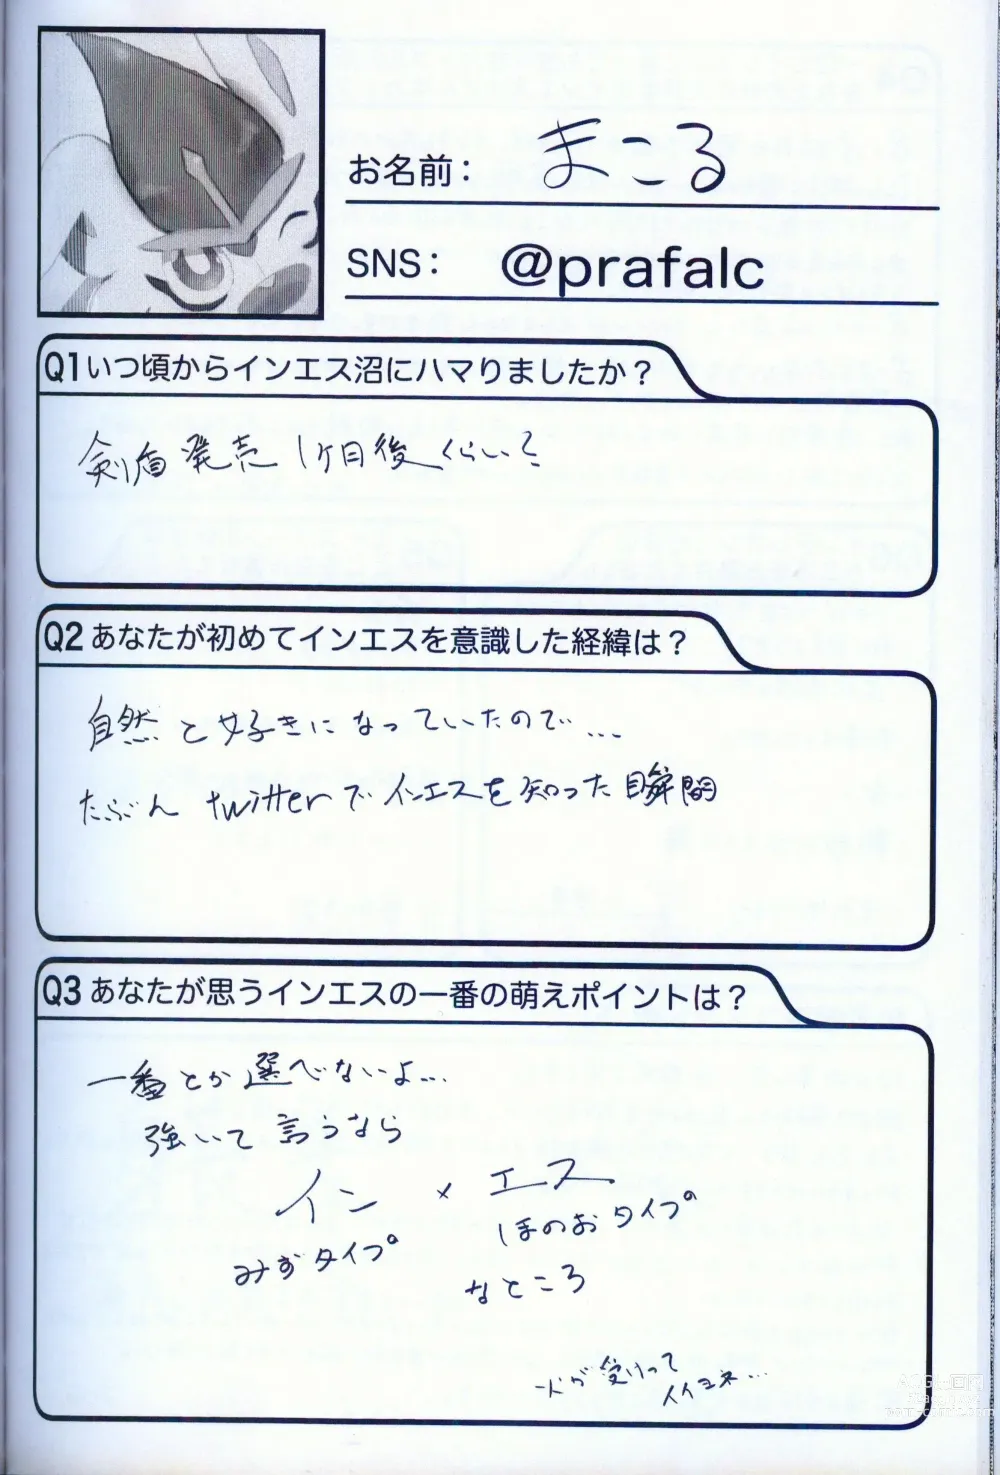 お名前: まこる
SNS: @prafalc
Q1いつ頃からインエス沼にハマりましたか?
剣盾発売 1ヶ月後くらい?
Q2あなたが初めてインエスを意識した経緯は?
自然と好きになっていたので...
たぶん twitterでインエスを知った瞬間
Q3あなたが思うインエスの一番の萌えポイントは?
一番とか選べないよ...
強いて言うなら
イン × エス
みずタイプ ほのおタイプ
なところ
火が受けって
イイヨネ...